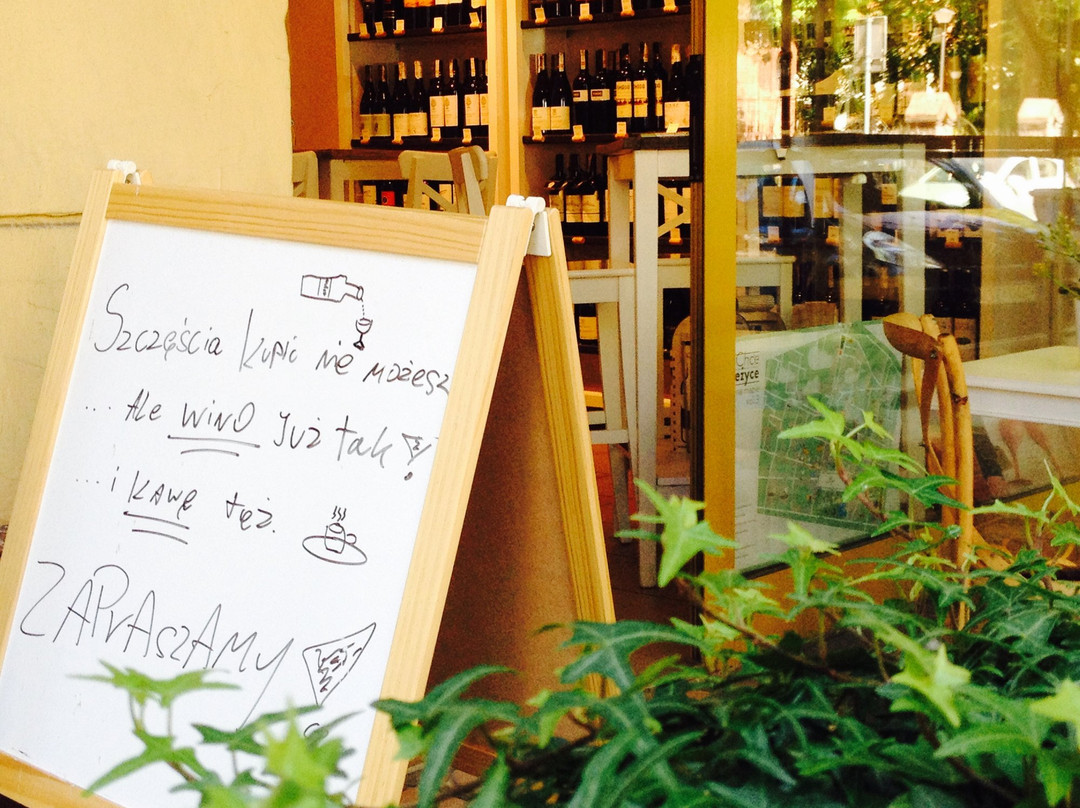 Szczęścia kupić nie możesz
... Ale WINO już tak!
... i KAWĘ też.
ZAPRASZAMY
Chcę
eżyce